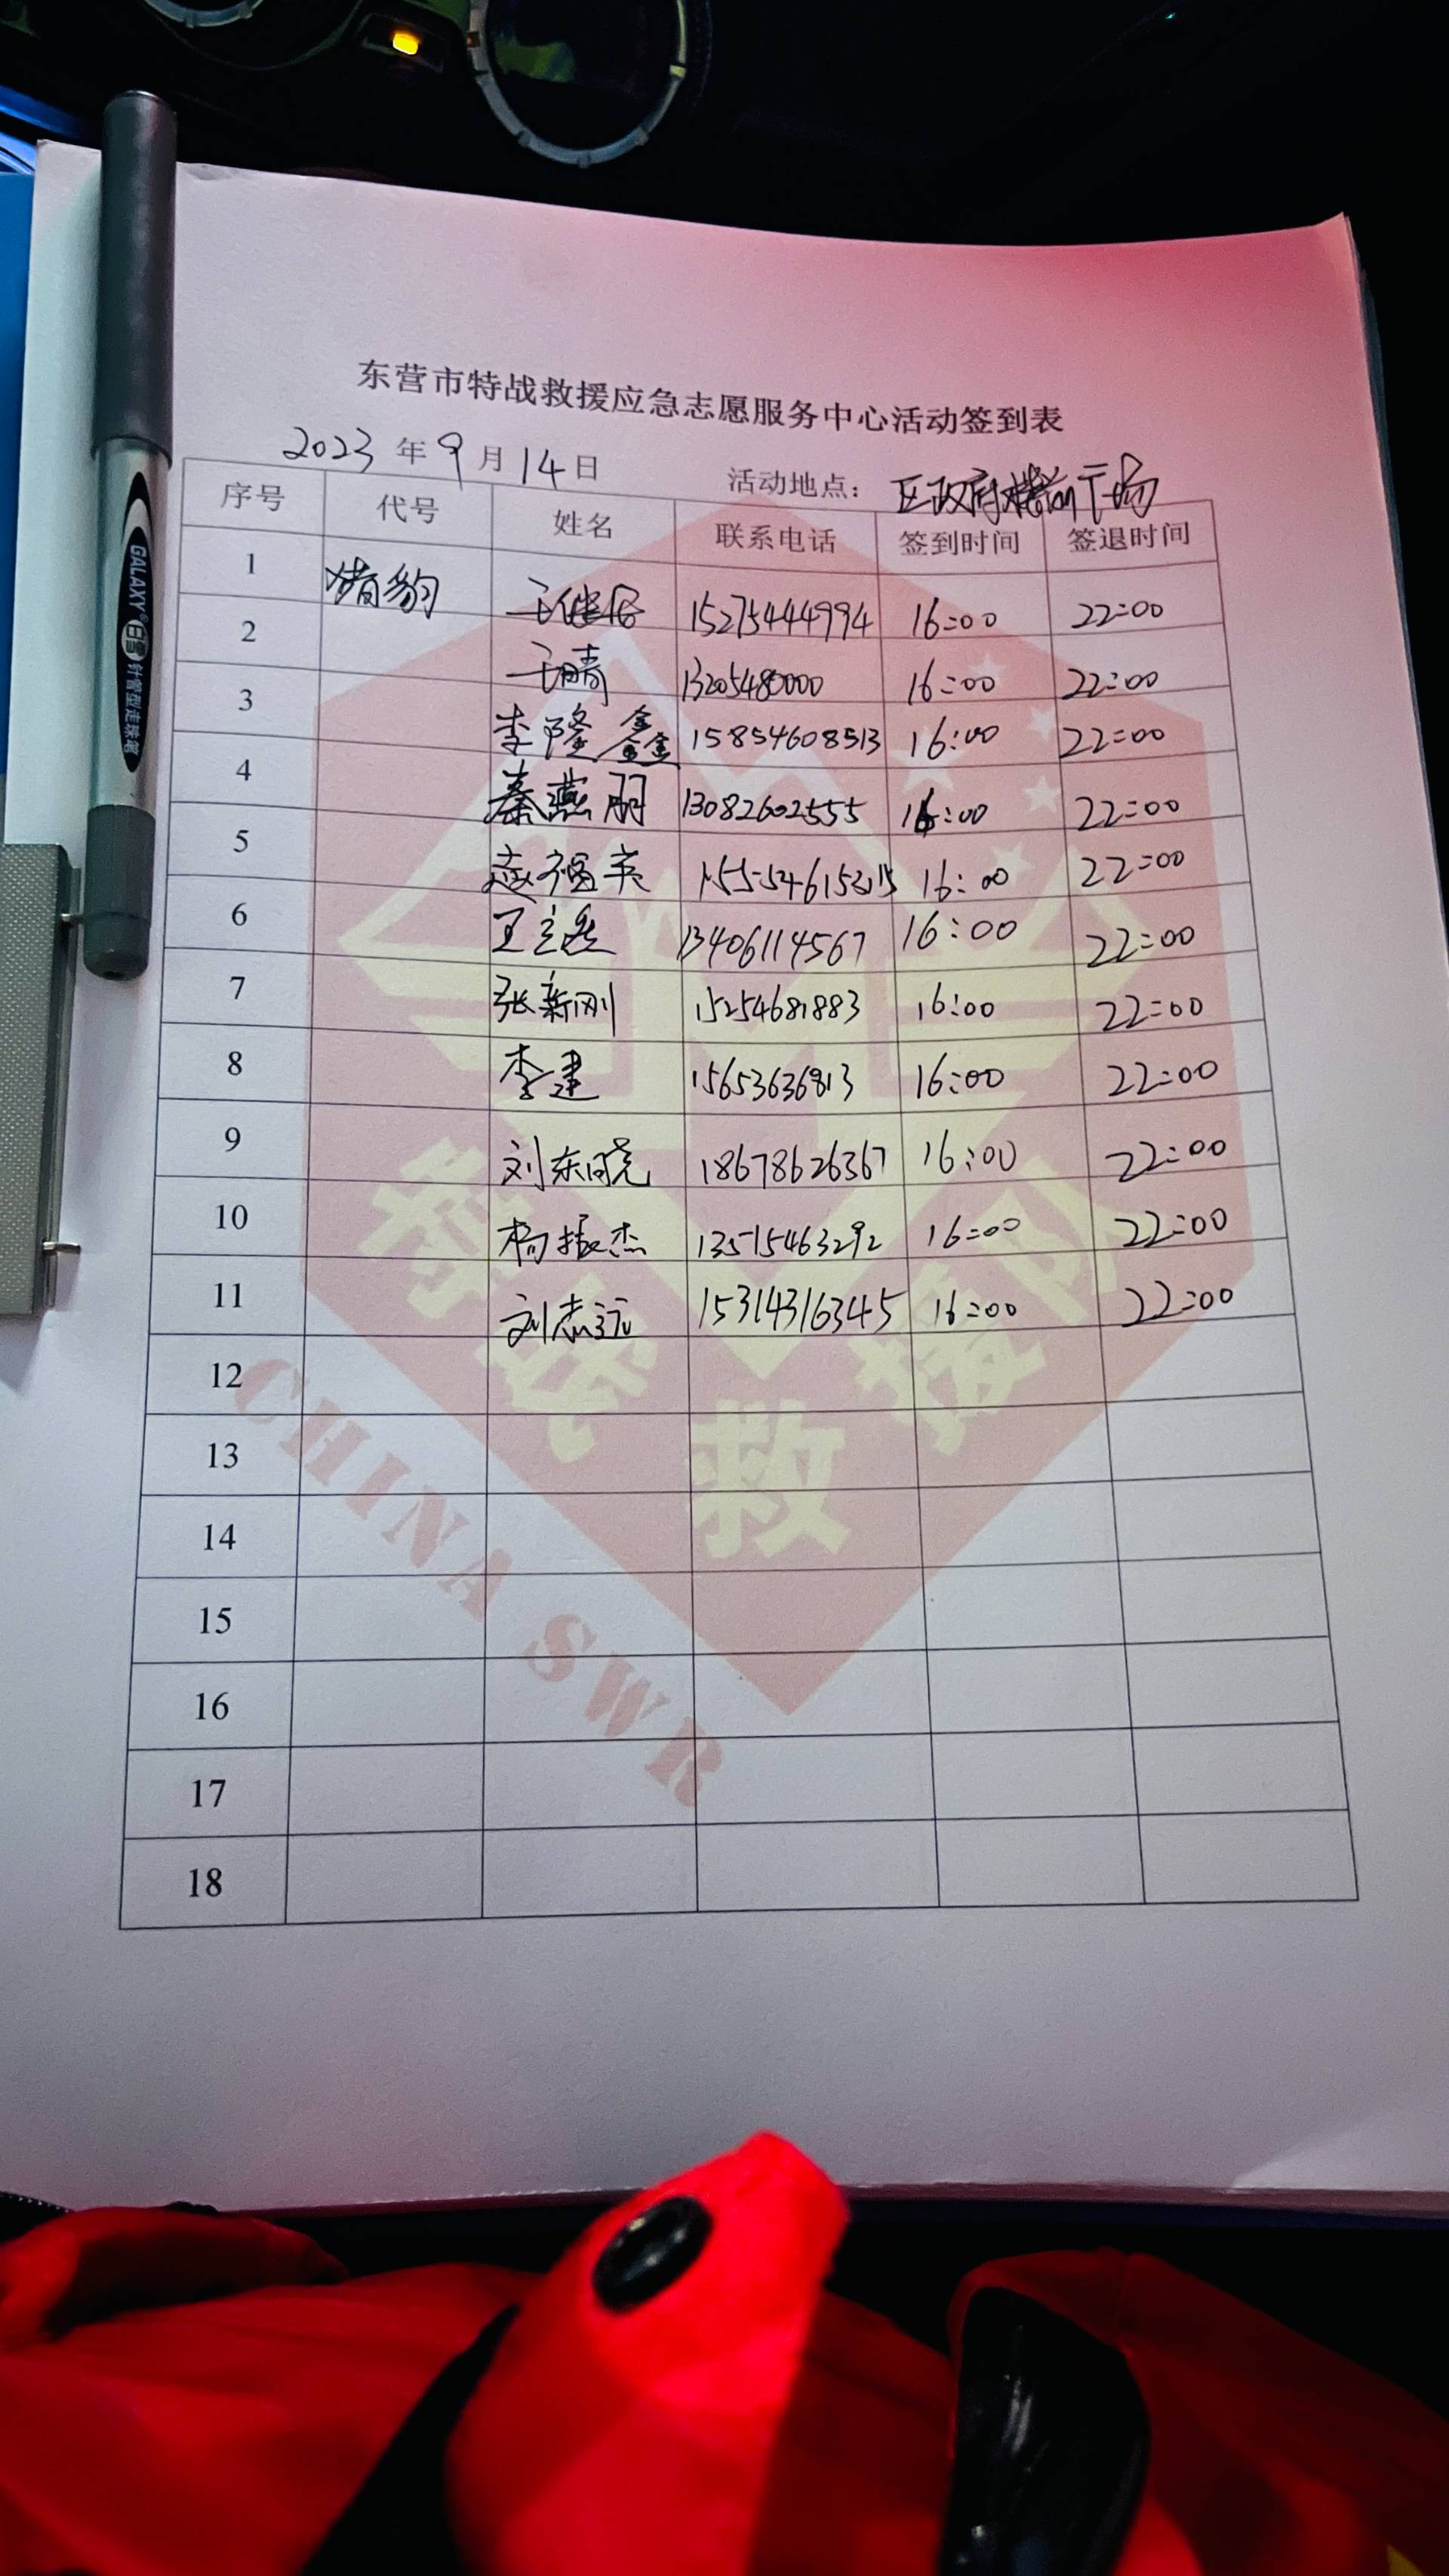 东营市特战救援应急志愿服务中心活动签到表
2023年9月14日 活动地点：区政府楼前广场
序号 代号 姓名 联系电话 签到时间 签退时间
1 猎豹 15275444994 16:00 22:00
2 王晴 13205480000 16:00 22:00
3 李隆鑫 15854608513 16:00 22:00
4 秦燕朋 13082602555 16:00 22:00
5 赵福英 16:00 22:00
6 王 13406114567 16:00 22:00
7 张新刚 15254681883 16:00 22:00
8 李建 15653636813 16:00 22:00
9 刘东晓 18678626367 16:00 22:00
10 杨振杰 13515463292 16:00 22:00
11 刘志远 15314316345 16:00 22:00
12
13
14
15
16
17
18
特战救援队
CHINA SWR
GALAXY 针管型走珠笔